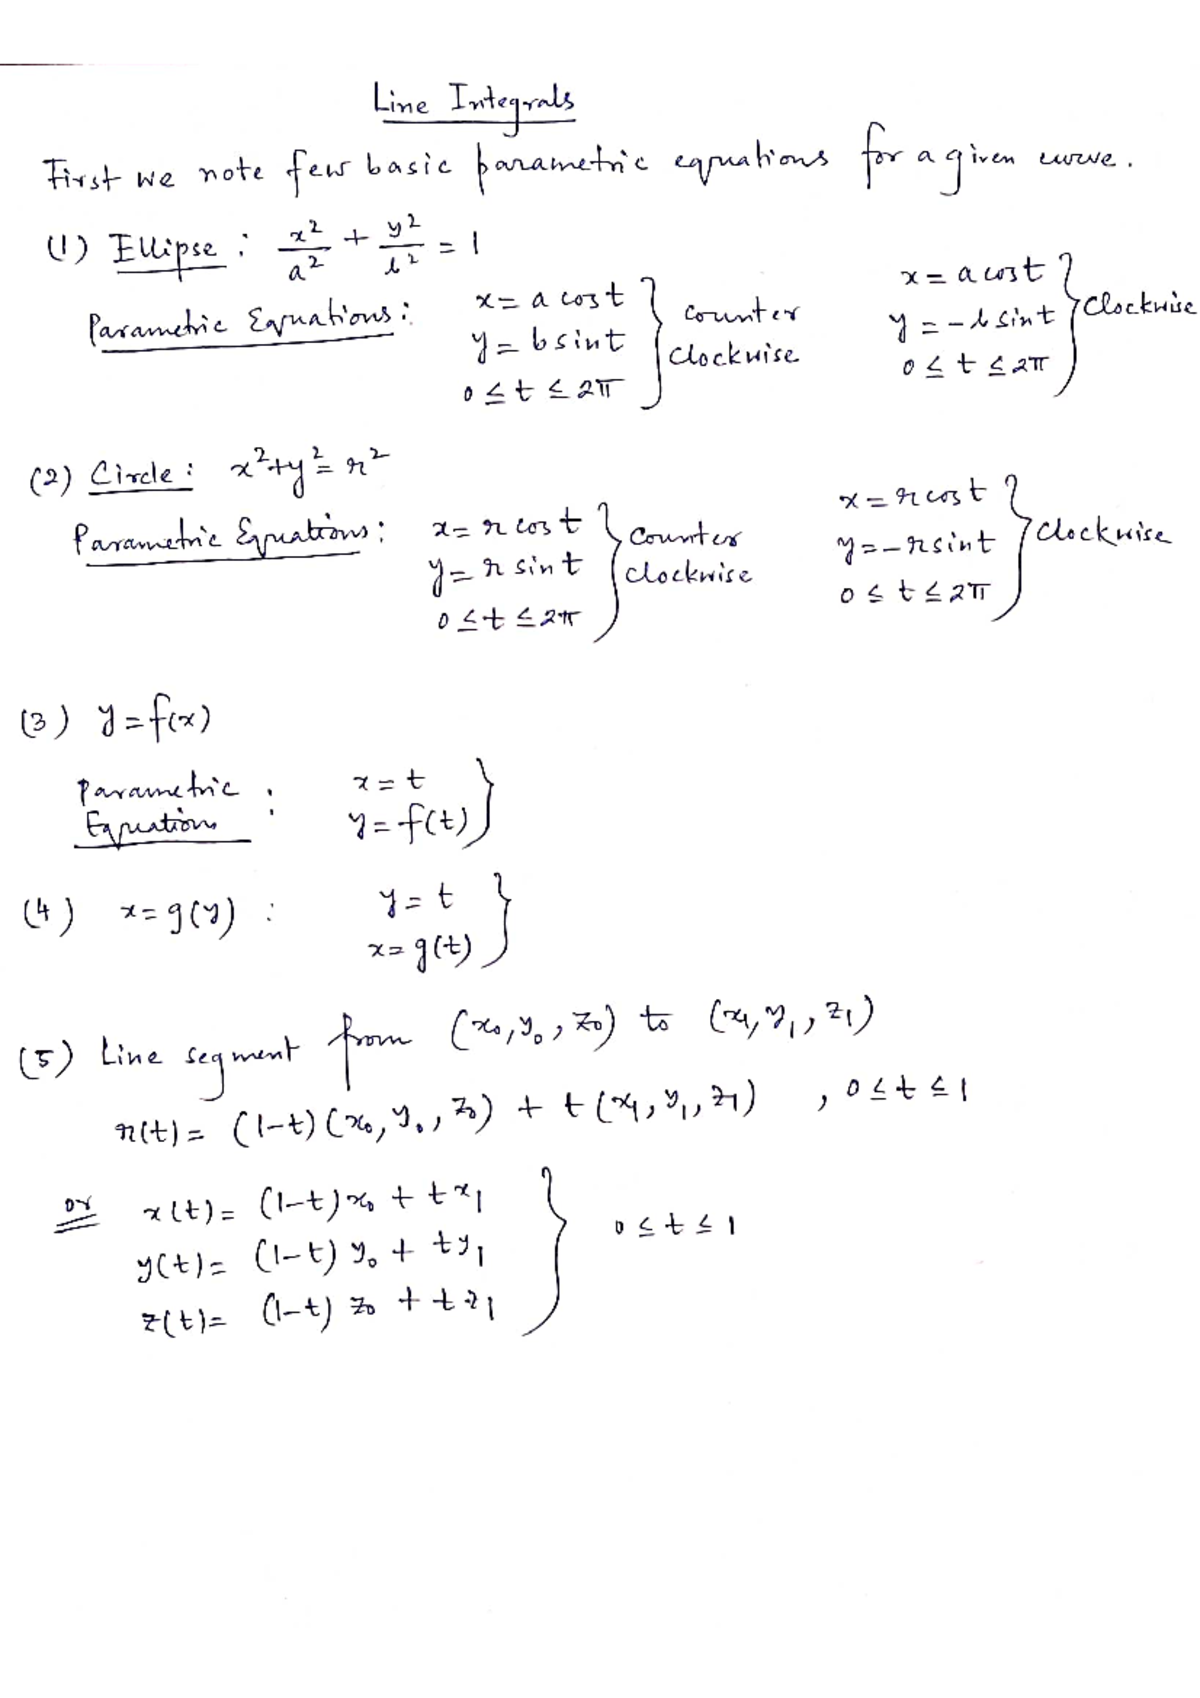 Line Integrals
First we note few basic parametric equations for a given curve.
(1) Ellipse : x²/a² + y²/b² = 1
Parametric Equations : x = a cos t } counter clockwise x = a cos t } clockwise
y = b sin t y = - b sin t
0 ≤ t ≤ 2π 0 ≤ t ≤ 2π
(2) Circle : x² + y² = r²
Parametric Equations : x = r cos t } counter clockwise x = r cos t } clockwise
y = r sin t y = - r sin t
0 ≤ t ≤ 2π 0 ≤ t ≤ 2π
(3) y = f(x)
Parametric Equations : x = t }
y = f(t)
(4) x = g(y) : y = t }
x = g(t)
(5) Line segment from (x₀, y₀, z₀) to (x₁, y₁, z₁)
r(t) = (1-t) (x₀, y₀, z₀) + t (x₁, y₁, z₁) , 0 ≤ t ≤ 1
or x(t) = (1-t) x₀ + t x₁
y(t) = (1-t) y₀ + t y₁ } 0 ≤ t ≤ 1
z(t) = (1-t) z₀ + t z₁